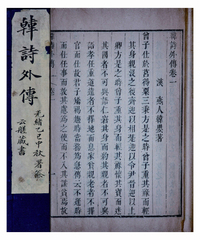 韓詩外傳
光緒乙巳中秋署簽
藏書
韓詩外傳卷一
漢 燕人韓嬰著
曾子仕於莒得粟三秉方是之時曾子重其祿而輕
其身親沒之後齊迎以相楚迎以令尹晉迎以上
卿方是之時曾子重其身而輕其祿懷其寶而迷
其國者不可與語仁窘其身而約其親者不可與
語孝任重道遠者不擇地而息家貧親老者不擇
官而仕故君子橋褐趨時當務為急傳云不逢時
而仕任事而敦其慮為之使而不入其謀貧焉故